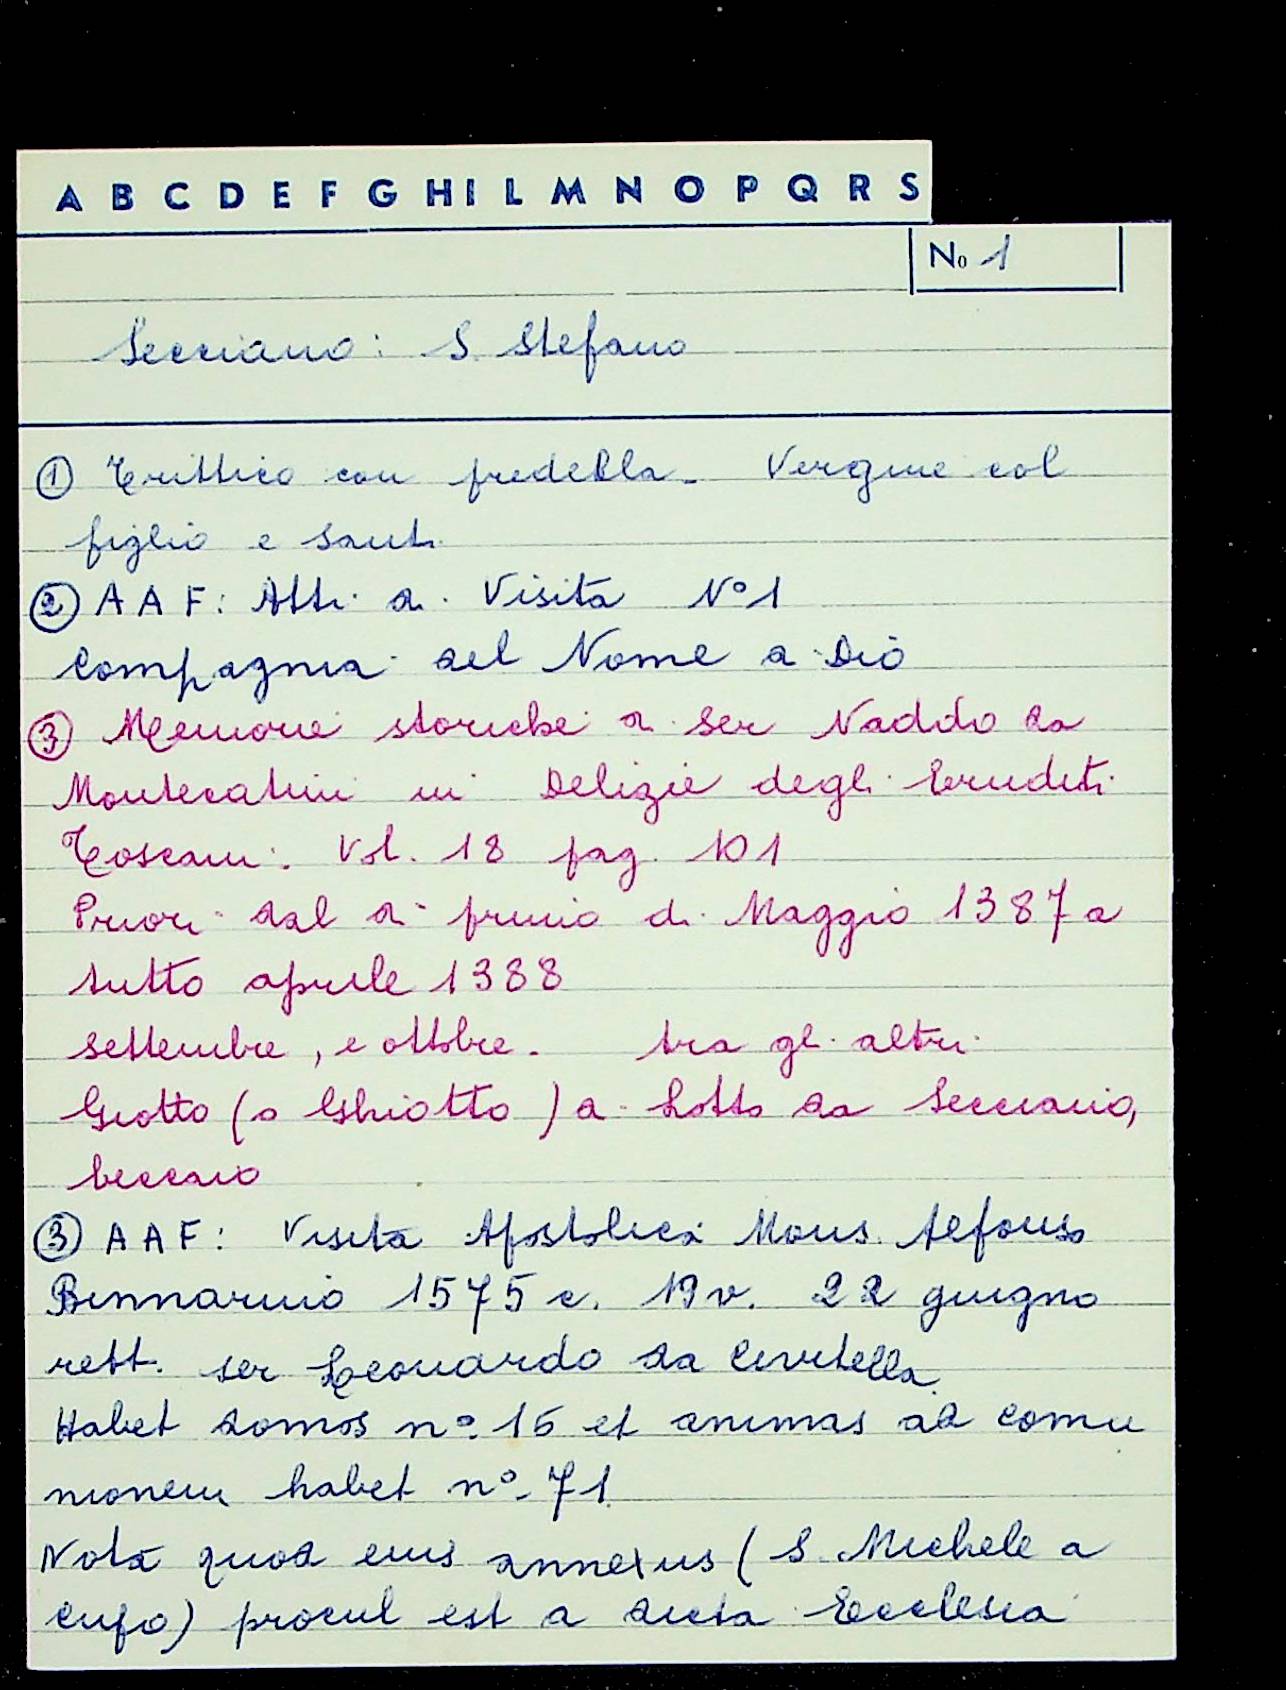 A B C D E F G H I L M N O P Q R S
No 1
Secciano: S. Stefano
① Trittico con predella. Vergine col
figlio e santi
② A A F: Atti di Visita N° 1
Compagnia del Nome di Dio
③ Memorie storiche di ser Naddo da
Montecatini in Delizie degli Eruditi
Toscani. Vol. 18 pag. 101
Priori dal dì primo di Maggio 1387 a
tutto aprile 1388
settembre, e ottobre. tra gli altri
Giotto (o Ghiotto) di Lotto da Secciano,
beccaio
③ A A F: Visita Apostolica Mons. Alfonso
Binnarino 1575 c. 19v. 22 giugno
rett. ser Leonardo da Civitella.
Habet domos n°. 16 et animas ad comu
nionem habet n°. 71
Nota quod eius annexus (S. Michele a
Cufo) procul est a dicta Ecclesia